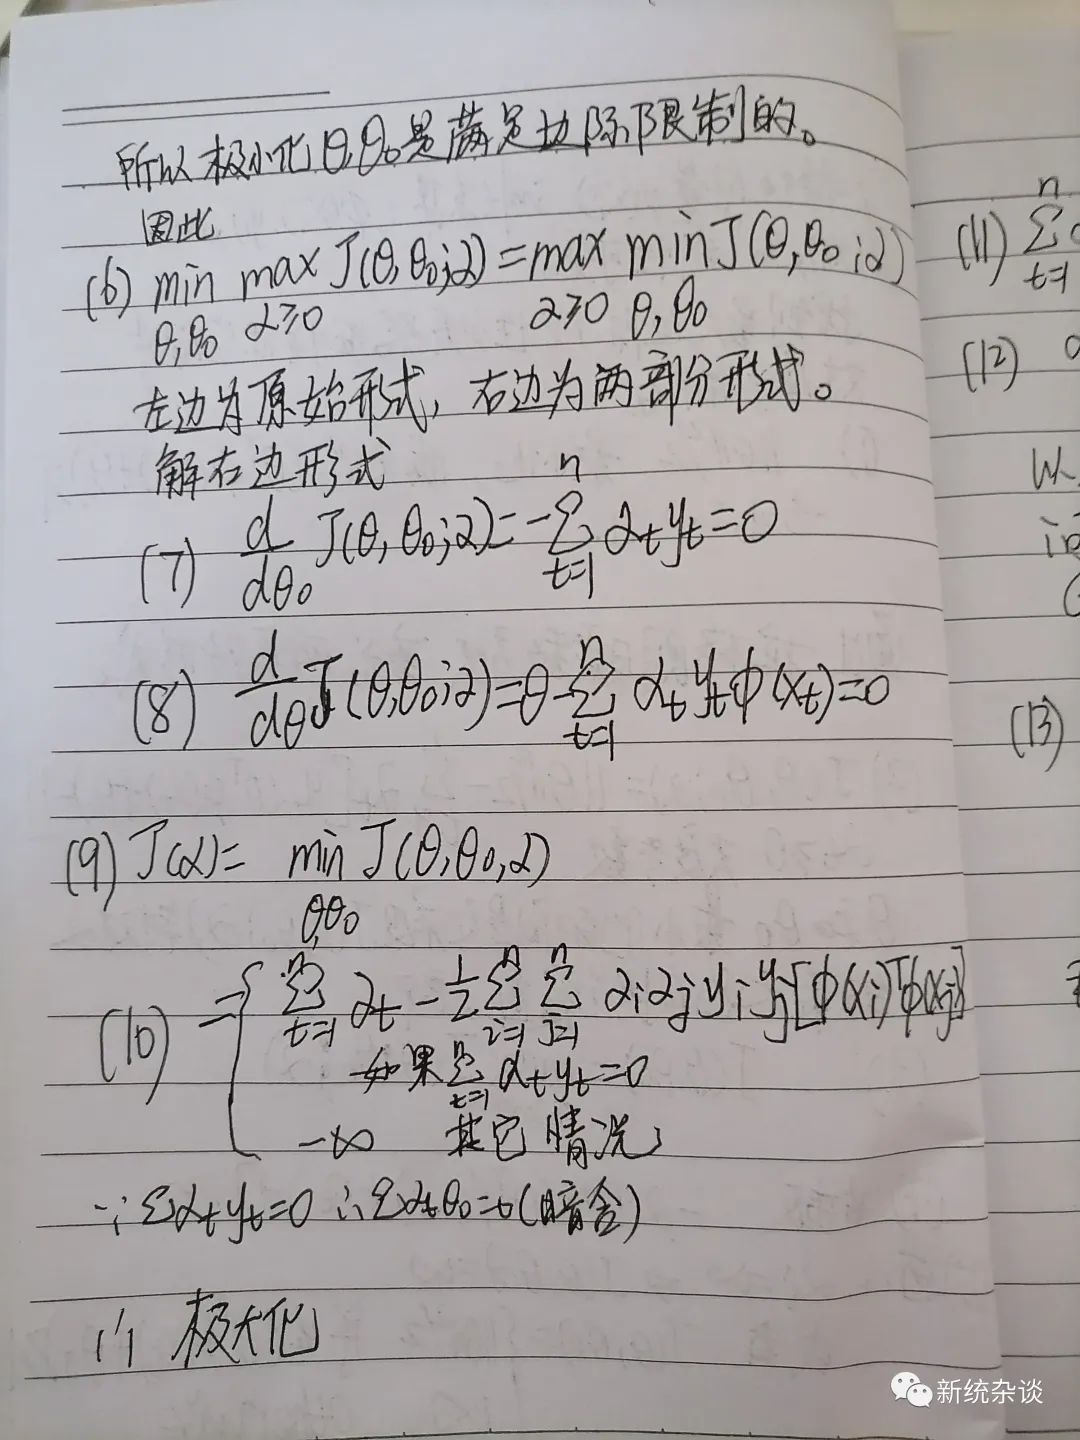 所以极小化θ,θ₀是满足边际限制的。
因此
(6) min max J(θ,θ₀;α)=max min J(θ,θ₀;α)
θ,θ₀ α≥0 α≥0 θ,θ₀
左边为原始形式，右边为两部分形式。
解右边形式
(7) d/dθ₀ J(θ,θ₀;α)=-∑ⁿₜ₌₁ αₜyₜ=0
(8) d/dθ J(θ,θ₀;α)=θ-∑ⁿₜ₌₁ αₜyₜφ(xₜ)=0
(9) J(α)= min J(θ,θ₀,α)
θ,θ₀
(10) ={ ∑ⁿₜ₌₁ αₜ-1/2∑ⁿᵢ₌₁∑ⁿⱼ₌₁ αᵢαⱼyᵢyⱼ[φ(xᵢ)ᵀφ(xⱼ)]
如果∑ⁿₜ₌₁ αₜyₜ=0
-∞ 其它情况
∵∑αₜyₜ=0 ∴∑αₜθ₀=(暗含)
∴ 极大化
(11) ∑ⁿₜ₌₁
(12)
(13)
新统杂谈